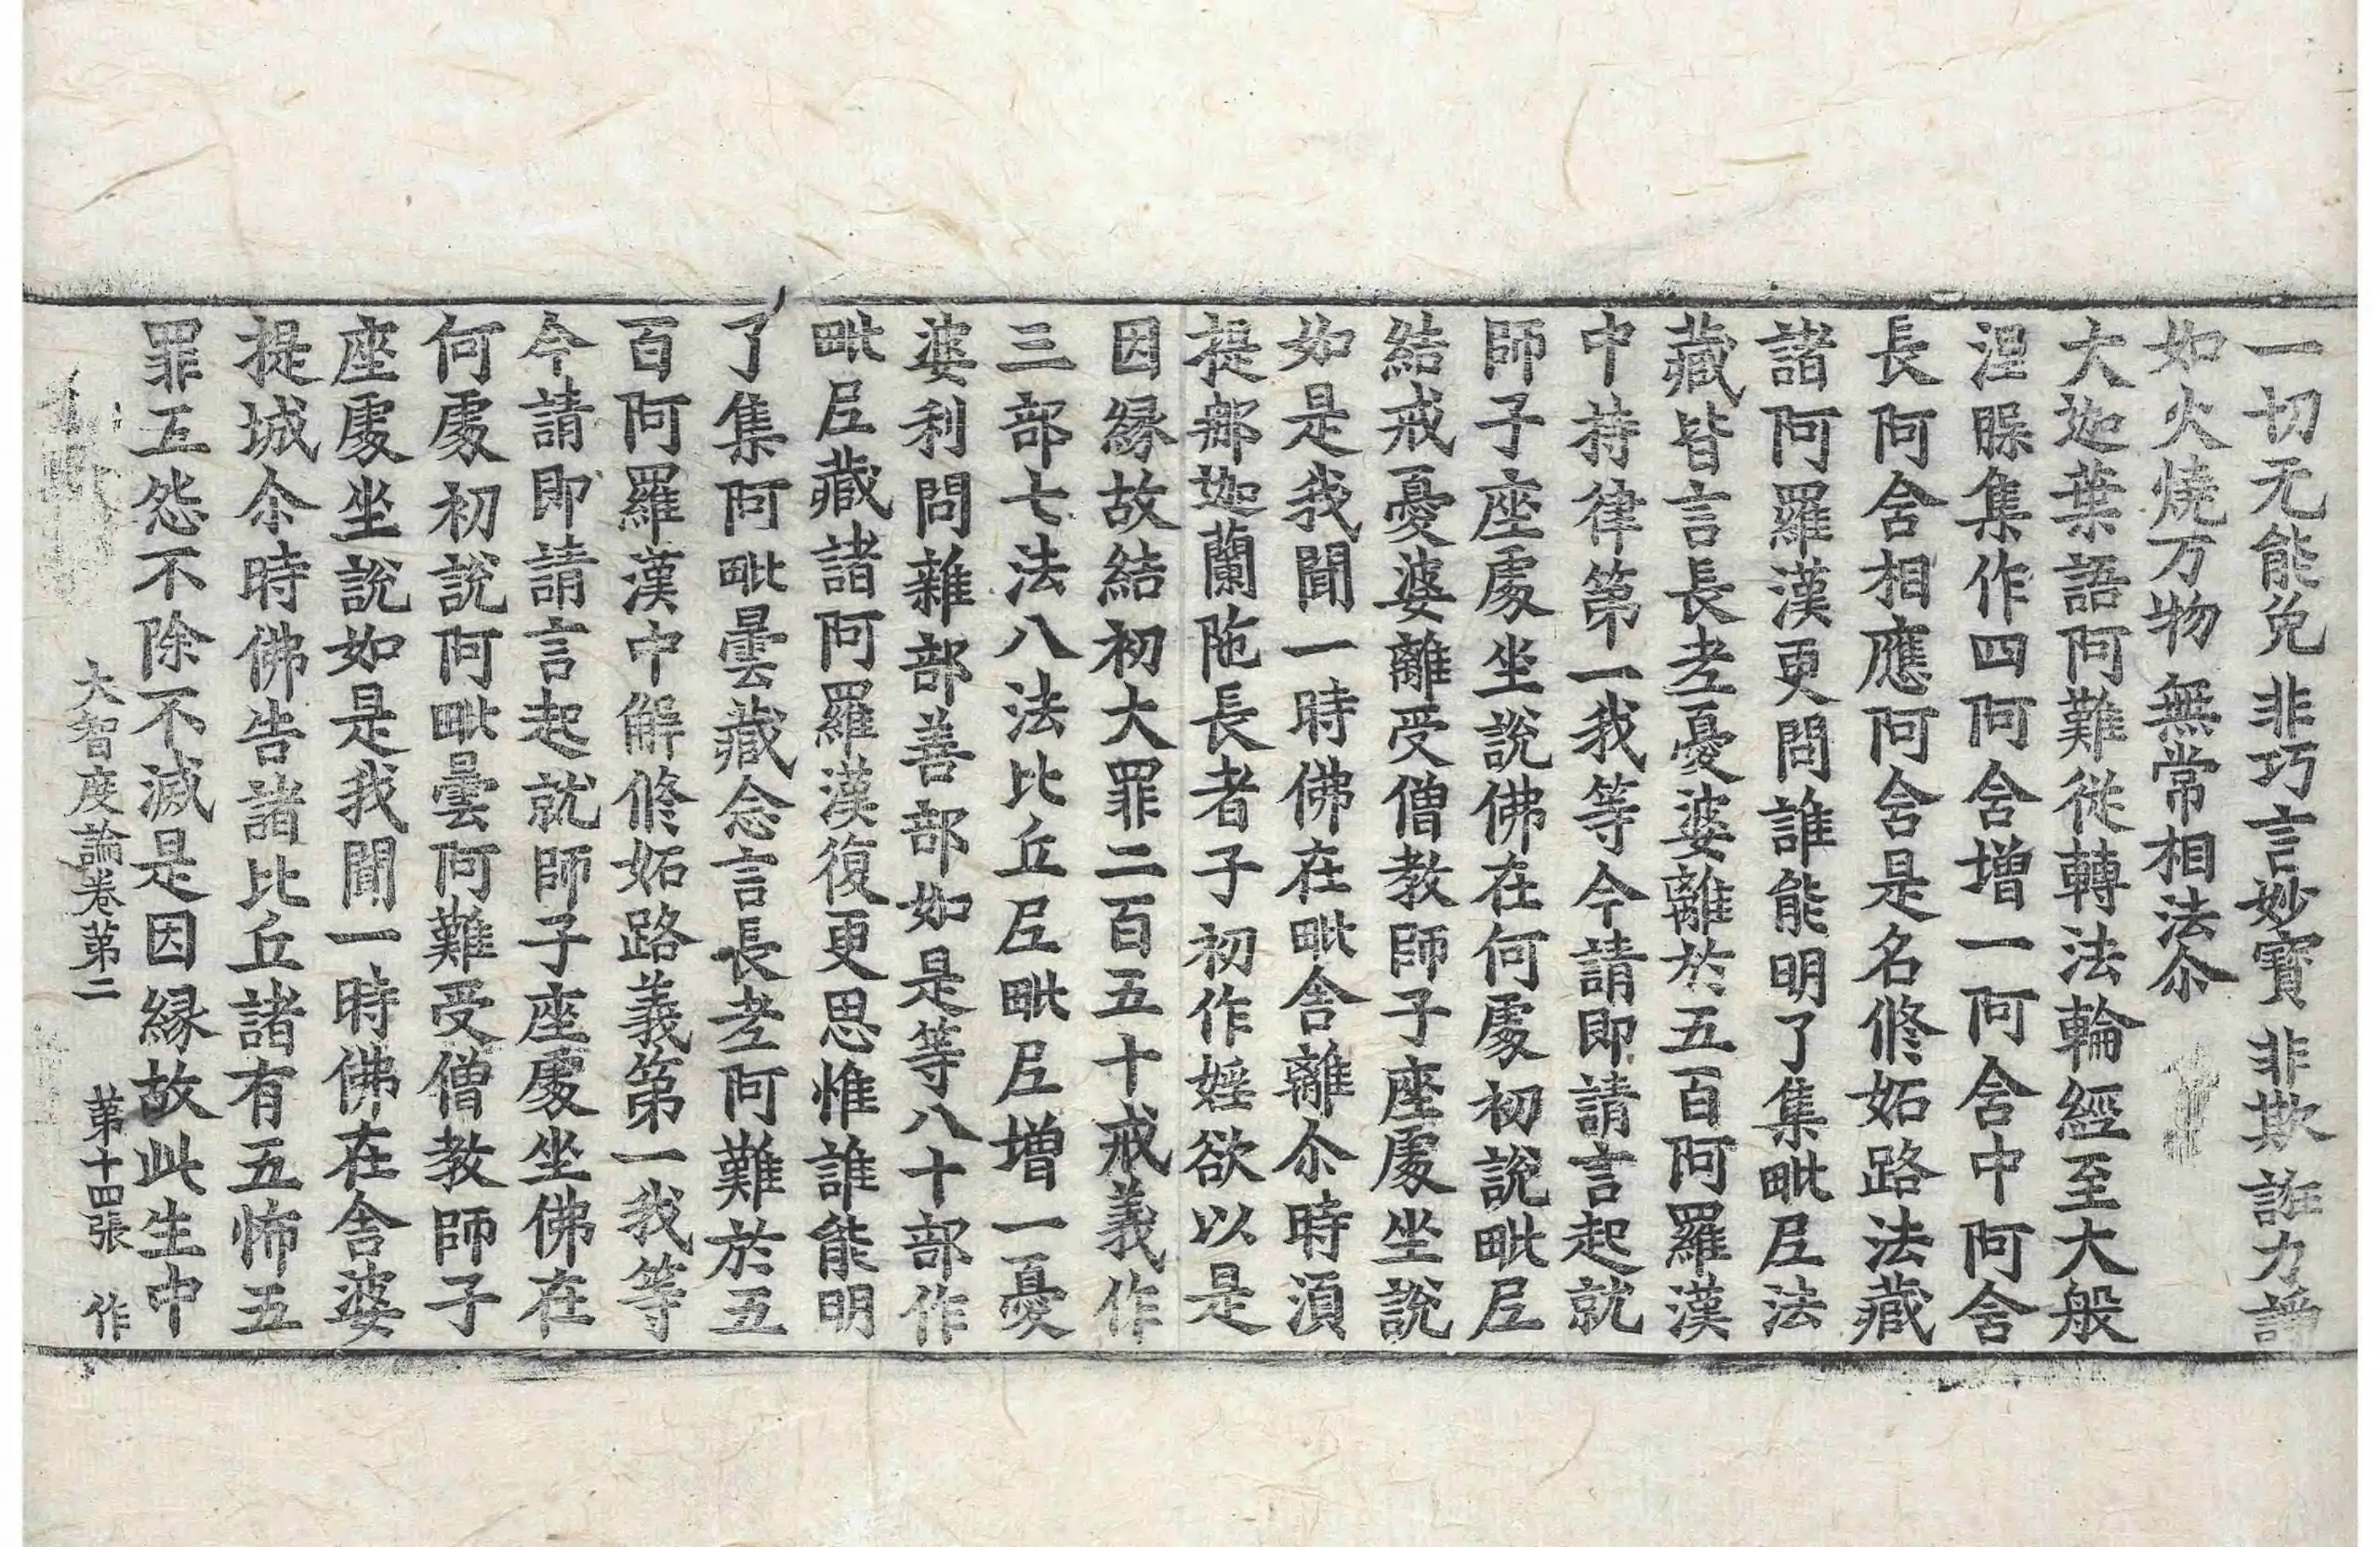 一切无能免 非巧言妙寶 非欺誑力諍
如火燒万物 無常相法尒
大迦葉語阿難從轉法輪經至大般
涅槃集作四阿含增一阿含中阿含
長阿含相應阿含是名修妬路法藏
諸阿羅漢更問誰能明了集毗尼法
藏皆言長老憂婆離於五百阿羅漢
中持律第一我等今請即請言起就
師子座處坐說佛在何處初說毗尼
結戒憂婆離受僧教師子座處坐說
如是我聞一時佛在毗舍離尒時湏
提那迦蘭陁長者子初作婬欲以是
因緣故結初大罪二百五十戒義作
三部七法八法比丘尼毗尼增一憂
婆利問雜部善部如是等八十部作
毗尼藏諸阿羅漢復更思惟誰能明
了集阿毗曇藏念言長老阿難於五
百阿羅漢中解修妬路義第一我等
今請即請言起就師子座處坐佛在
何處初說阿毗曇阿難受僧教師子
座處坐說如是我聞一時佛在舍婆
提城尒時佛告諸比丘諸有五怖五
罪五怨不除不滅是因緣故此生中
大智度論卷第二 第十四張 作